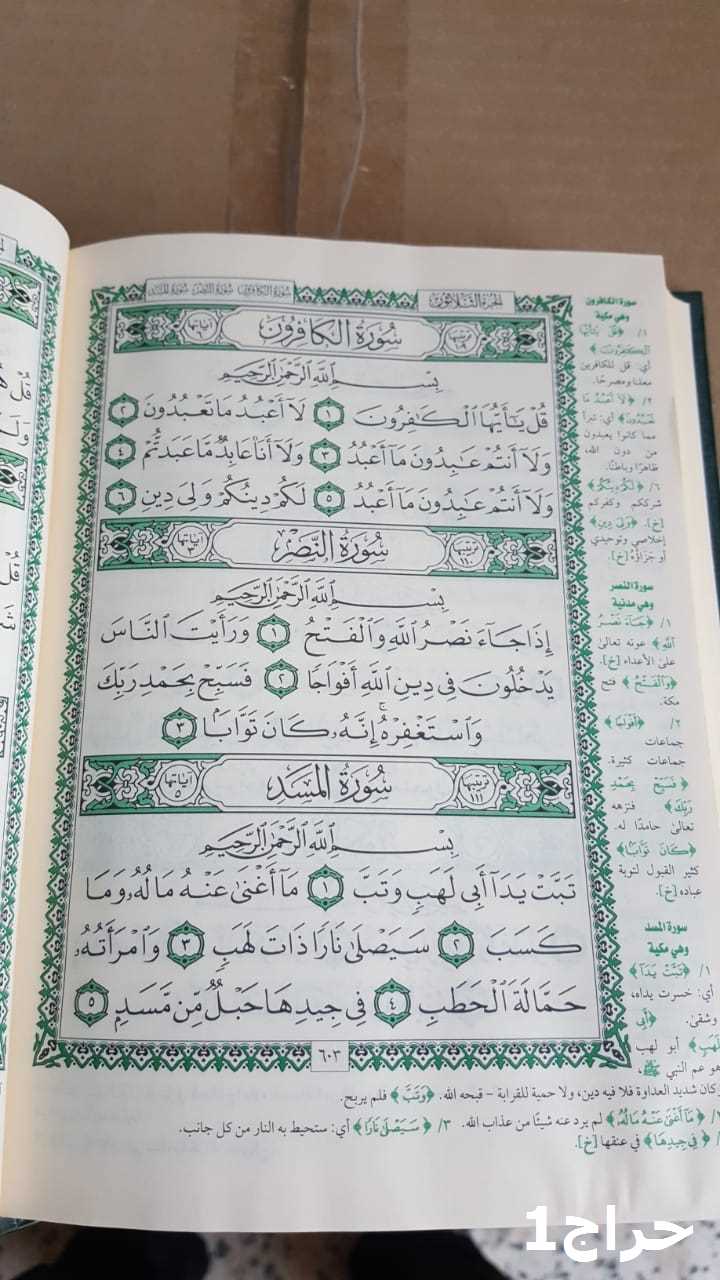 الجزء الثلاثون
سورة الكافرون سورة النصر سورة المسد
سُورَةُ الكَافِرُونَ
آياتها ٦
بِسْمِ اللَّهِ الرَّحْمَٰنِ الرَّحِيمِ
قُلْ يَٰٓأَيُّهَا ٱلْكَٰفِرُونَ ١ لَآ أَعْبُدُ مَا تَعْبُدُونَ ٢
وَلَآ أَنتُمْ عَٰبِدُونَ مَآ أَعْبُدُ ٣ وَلَآ أَنَا۠ عَابِدٌ مَّا عَبَدتُّمْ ٤
وَلَآ أَنتُمْ عَٰبِدُونَ مَآ أَعْبُدُ ٥ لَكُمْ دِينُكُمْ وَلِيَ دِينِ ٦
سُورَةُ النَّصْرِ
ترتيبها ١١٠
آياتها ٣
بِسْمِ اللَّهِ الرَّحْمَٰنِ الرَّحِيمِ
إِذَا جَآءَ نَصْرُ ٱللَّهِ وَٱلْفَتْحُ ١ وَرَأَيْتَ ٱلنَّاسَ
يَدْخُلُونَ فِي دِينِ ٱللَّهِ أَفْوَاجًا ٢ فَسَبِّحْ بِحَمْدِ رَبِّكَ
وَٱسْتَغْفِرْهُ ۚ إِنَّهُۥ كَانَ تَوَّابًۢا ٣
سُورَةُ المَسَدِ
ترتيبها ١١١
آياتها ٥
بِسْمِ اللَّهِ الرَّحْمَٰنِ الرَّحِيمِ
تَبَّتْ يَدَآ أَبِي لَهَبٍ وَتَبَّ ١ مَآ أَغْنَىٰ عَنْهُ مَالُهُۥ وَمَا
كَسَبَ ٢ سَيَصْلَىٰ نَارًا ذَاتَ لَهَبٍ ٣ وَٱمْرَأَتُهُۥ
حَمَّالَةَ ٱلْحَطَبِ ٤ فِي جِيدِهَا حَبْلٌ مِّن مَّسَدٍۭ ٥
٦٠٣
سورة الكافرون
وهي مكية
١/ ﴿قُلْ يَٰٓأَيُّهَا
ٱلْكَٰفِرُونَ﴾
أي: قل للكافرين
معلنا ومصرحًا.
٢/ ﴿لَآ أَعْبُدُ مَا
تَعْبُدُونَ﴾ أي: تبرأ
مما كانوا يعبدون
من دون الله،
ظاهرًا وباطنًا.
٦/ ﴿لَكُمْ دِينُكُمْ﴾
شرككم وكفركم
[خ]. ﴿وَلِيَ دِينِ﴾
إخلاصي وتوحيدي
أو جزاؤه [خ].
سورة النصر
وهي مدنية
١/ ﴿جَآءَ نَصْرُ
ٱللَّهِ﴾ عونه تعالى
على الأعداء [خ].
﴿وَٱلْفَتْحُ﴾ فتح
مكة.
٢/ ﴿أَفْوَاجًا﴾
جماعات
جماعات كثيرة.
﴿فَسَبِّحْ بِحَمْدِ
رَبِّكَ﴾ فنزهه
تعالى حامدًا له.
﴿كَانَ تَوَّابًۢا﴾
كثير القبول لتوبة
عباده [خ].
سورة المسد
وهي مكية
١/ ﴿تَبَّتْ يَدَآ﴾
أي: خسرت يداه،
وشقى. ﴿أَبِي
لَهَبٍ﴾ أبو لهب
هو عم النبي ﷺ،
وكان شديد العداوة فلا فيه دين، ولا حمية للقرابة – قبحه الله. ﴿وَتَبَّ﴾ فلم يربح.
﴿مَآ أَغْنَىٰ عَنْهُ مَالُهُۥ﴾ لم يرد عنه شيئًا من عذاب الله. ٣/ ﴿سَيَصْلَىٰ نَارًا﴾ أي: ستحيط به النار من كل جانب.
﴿فِي جِيدِهَا﴾ في عنقها [خ].
حراج1